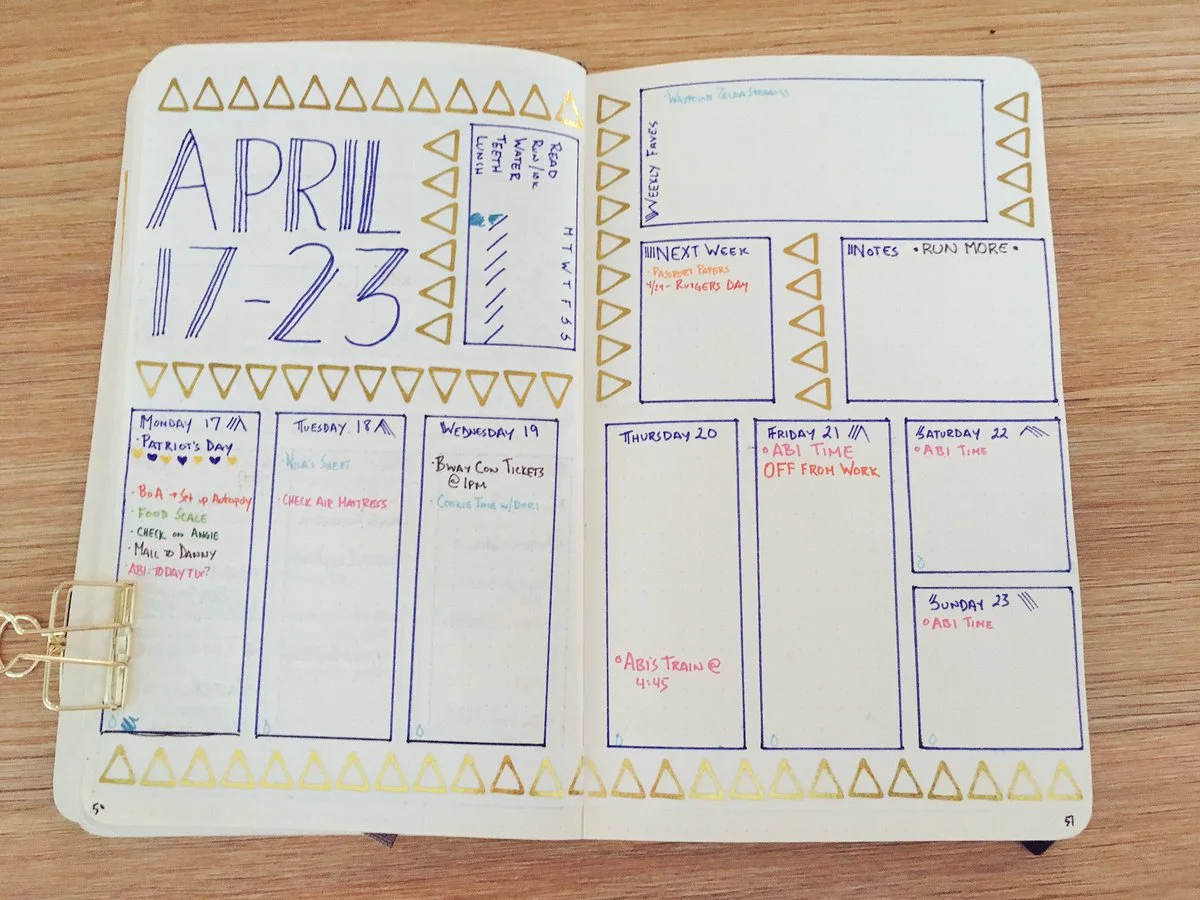 APRIL
17-23
READ
RUN/10K
WATER
TEETH
LUNCH
M T W T F S S
MONDAY 17
· PATRIOT'S DAY
· BOA → SET UP AUTOPAY
· FOOD SCALE
· CHECK ON ANGIE
· MAIL TO DANNY
· ABI: TODAY TIX?
TUESDAY 18
SHEET
· CHECK AIR MATTRESS
WEDNESDAY 19
· BWAY CON TICKETS
@ 1PM
· COOKIE TIME W/ DORI
50
WEEKLY FAVES
· WAYPOINT ZELDA STREAMS
NEXT WEEK
· PASSPORT PAPERS
4/29 - RUTGERS DAY
NOTES · RUN MORE ·
THURSDAY 20
ABI'S TRAIN @
4:45
FRIDAY 21
ABI TIME
OFF FROM WORK
SATURDAY 22
ABI TIME
SUNDAY 23
ABI TIME
51